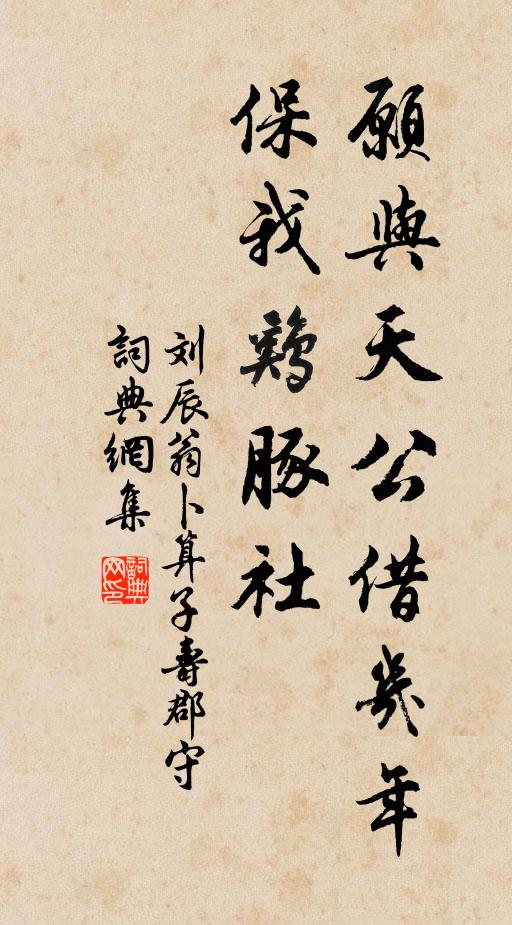 願與天公借幾年
保我鷄豚社
刘辰翁卜算子壽郡守
詞典網集
詞典网印